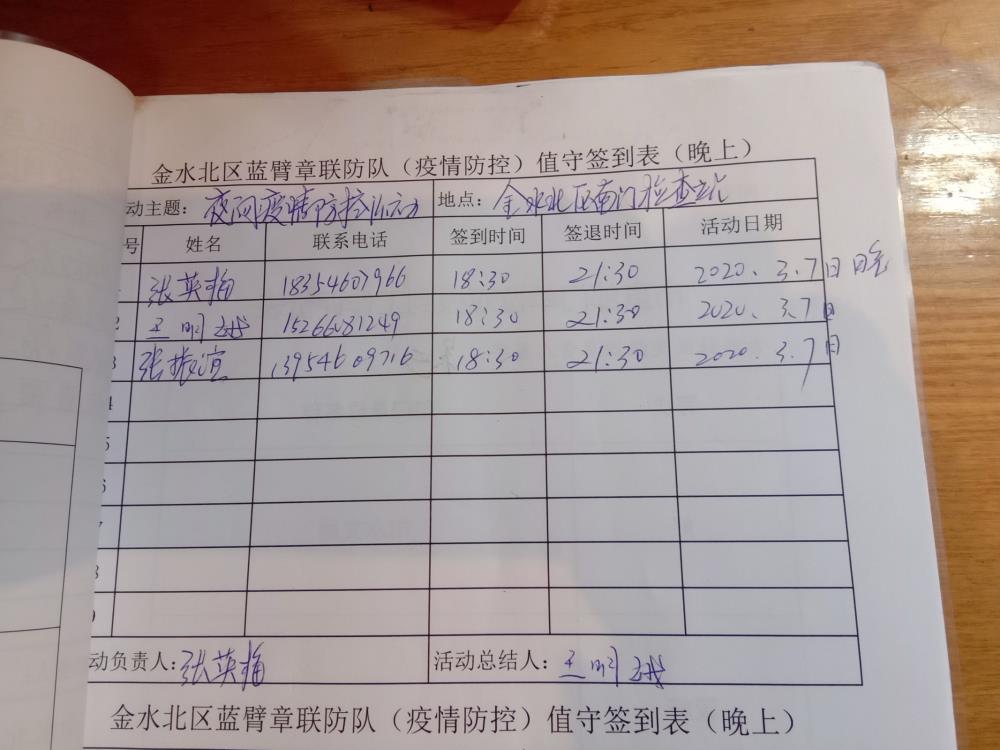 金水北区蓝臂章联防队（疫情防控）值守签到表（晚上）
动主题： 夜间疫情防控活动 地点： 金水北区南门检查站
号 姓名 联系电话 签到时间 签退时间 活动日期
张英梅 18354607966 18:30 21:30 2020、3.7日
2 王明 15266081249 18:30 21:30 2020、3.7日
3 张振谊 13954609716 18:30 21:30 2020.3.7日
4
5
6
7
8
9
动负责人： 张英梅 活动总结人： 王明
金水北区蓝臂章联防队（疫情防控）值守签到表（晚上）